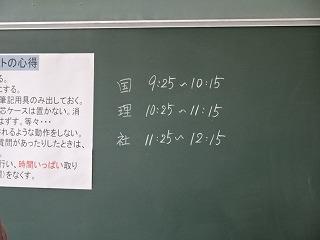 トの心得
る。
にする。
筆記用具のみ出しておく。
芯ケースは置かない。消
はずす。等々・・・
れるような動作をしない。
質問があったりしたときは、
行い、時間いっぱい取り
をなくす。
国 9:25〜10:15
理 10:25〜11:15
社 11:25〜12:15